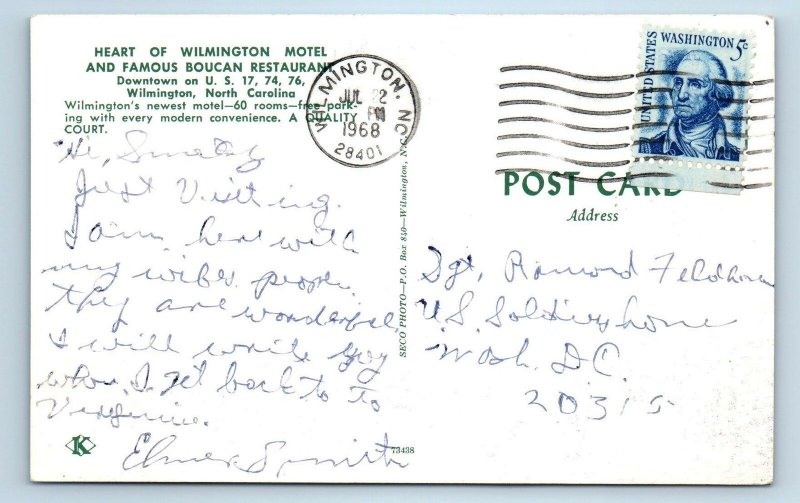 HEART OF WILMINGTON MOTEL
AND FAMOUS BOUCAN RESTAURANT
Downtown on U. S. 17, 74, 76,
Wilmington, North Carolina
Wilmington's newest motel—60 rooms—free park-
ing with every modern convenience. A QUALITY
COURT.
Hi,
Just Visiting.
I am here with
my wifes people
they are wonderful
I will write you
when I get back to
Virginia.
Elmer Smith
K
73438
SECO PHOTO—P.O. Box 840—Wilmington, N.C.
WILMINGTON, NC
JUL 22
PM
1968
28401
UNITED STATES
WASHINGTON 5c
POST CARD
Address
Sgt, Raymond
US Soldiers home
Wash. D.C.
20315